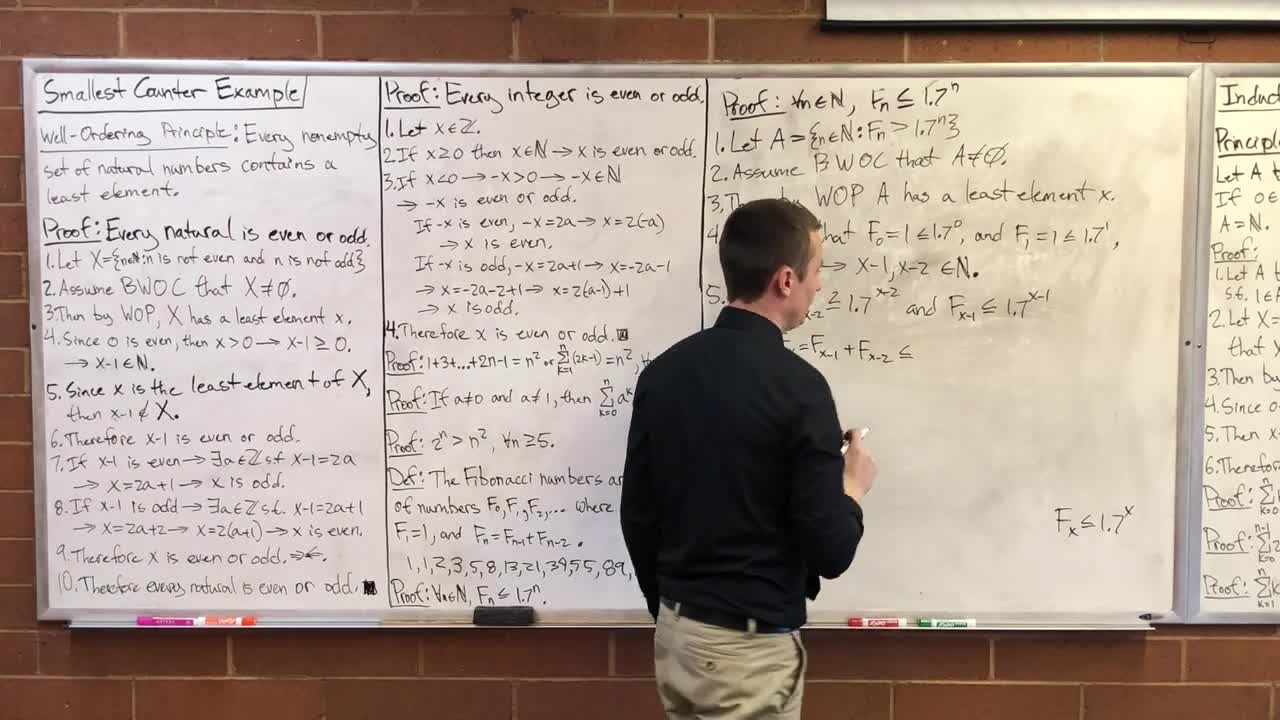 Smallest Counter Example
Well-Ordering Principle: Every nonempty
set of natural numbers contains a
least element.
Proof: Every natural is even or odd.
1. Let X={n∈ℕ:n is not even and n is not odd}
2. Assume BWOC that X≠∅.
3. Then by WOP, X has a least element x.
4. Since 0 is even, then x>0→x-1≥0.
→x-1∈ℕ.
5. Since x is the least element of X,
then x-1∉X.
6. Therefore x-1 is even or odd.
7. If x-1 is even→∃a∈ℤ s.t. x-1=2a
→x=2a+1→x is odd.
8. If x-1 is odd→∃a∈ℤ s.t. x-1=2a+1
→x=2a+2→x=2(a+1)→x is even.
9. Therefore x is even or odd. ⇒⇐.
10. Therefore every natural is even or odd.
Proof: Every integer is even or odd.
1. Let x∈ℤ.
2. If x≥0 then x∈ℕ→x is even or odd.
3. If x<0→-x>0→-x∈ℕ
→-x is even or odd.
If -x is even, -x=2a→x=2(-a)
→x is even.
If -x is odd, -x=2a+1→x=-2a-1
→x=-2a-2+1→x=2(-a-1)+1
→x is odd.
4. Therefore x is even or odd.
Proof: 1+3+...+2n-1=n² or Σₖ₌₁ⁿ(2k-1)=n²,
Proof: If a≠0 and a≠1, then Σₖ₌₀ⁿ aᵏ
Proof: 2ⁿ>n², ∀n≥5.
Def: The Fibonacci numbers
of numbers F₀,F₁,F₂,... where
F₁=1, and Fₙ=Fₙ₋₁+Fₙ₋₂.
1,1,2,3,5,8,13,21,34,55,89,
Proof: ∀n∈ℕ, Fₙ≤1.7ⁿ.
Proof: ∀n∈ℕ, Fₙ≤1.7ⁿ
1. Let A={n∈ℕ:Fₙ>1.7ⁿ}
2. Assume BWOC that A≠∅.
3. WOP A has a least element x.
4 that F₀=1≤1.7⁰, and F₁=1≤1.7¹,
→x-1,x-2∈ℕ.
5. ≤1.7ˣ⁻² and Fₓ₋₁≤1.7ˣ⁻¹
=Fₓ₋₁+Fₓ₋₂≤
Fₓ≤1.7ˣ
Principle
Let A
If 0∈
A=ℕ.
Proof:
1. Let A
s.t.
2. Let X=
that
3. Then by
4. Since
5. Then x
6.
Proof:
Proof:
Proof: